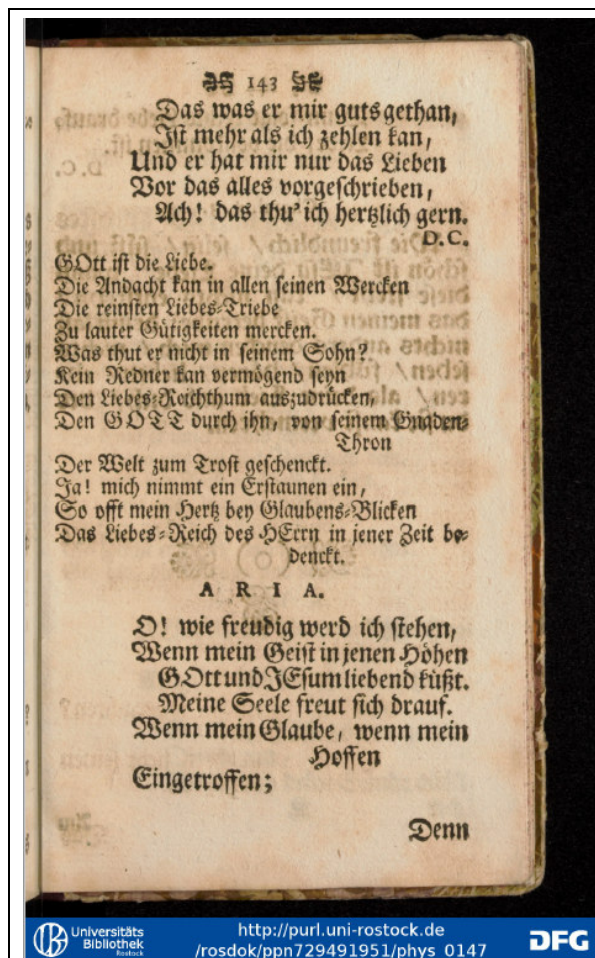 143
Das was er mir guts gethan,
Ist mehr als ich zehlen kan,
Und er hat mir nur das Lieben
Vor das alles vorgeschrieben,
Ach! das thu' ich hertzlich gern.
D.C.
GOtt ist die Liebe.
Die Andacht kan in allen seinen Wercken
Die reinsten Liebes-Triebe
Zu lauter Gütigkeiten mercken.
Was thut er nicht in seinem Sohn?
Kein Redner kan vermögend seyn
Den Liebes-Reichthum auszudrücken,
Den GOTT durch ihn, von seinem Gnaden-
Thron
Der Welt zum Trost geschenckt.
Ja! mich nimmt ein Erstaunen ein,
So offt mein Hertz bey Glaubens-Blicken
Das Liebes-Reich des HErrn in jener Zeit be-
denckt.
ARIA.
O! wie freudig werd ich stehen,
Wenn mein Geist in jenen Höhen
GOtt und JEsum liebend küßt.
Meine Seele freut sich drauf.
Wenn mein Glaube, wenn mein
Hoffen
Eingetroffen;
Denn
Universitäts
Bibliothek
Rostock
http://purl.uni-rostock.de
/rosdok/ppn729491951/phys_0147
DFG